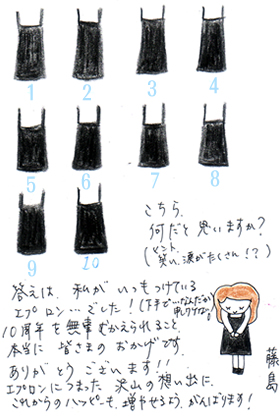 1 2 3 4
5 6 7 8
9 10
こちら、
何だと思いますか?
(ヒント、
笑い、涙がたくさん!?)
答えは、私がいつもつけている
エプロン…でした!(下手で…なんだか
申し訳ない)
10周年を無事むかえられること、
本当に皆さまのおかげです。
ありがとうございます!!
エプロンにつまった沢山の想い出に、
これからのハッピーも、増やせるようがんばります!
藤島